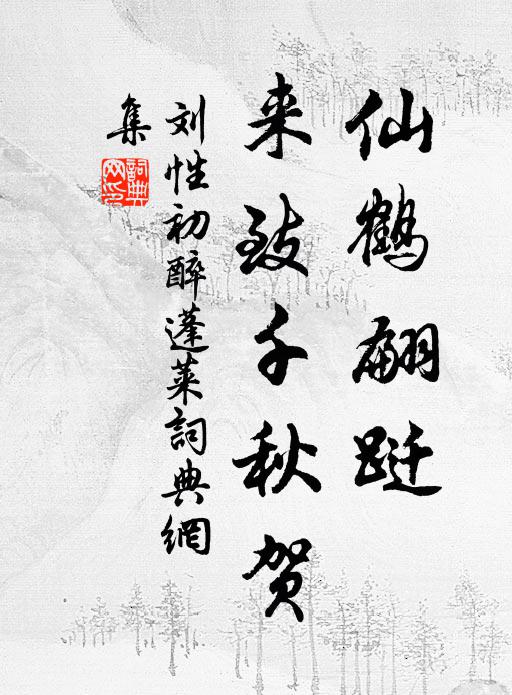 仙鹤翩跹
来致千秋贺
刘性初醉蓬莱词典網
集
詞典網印